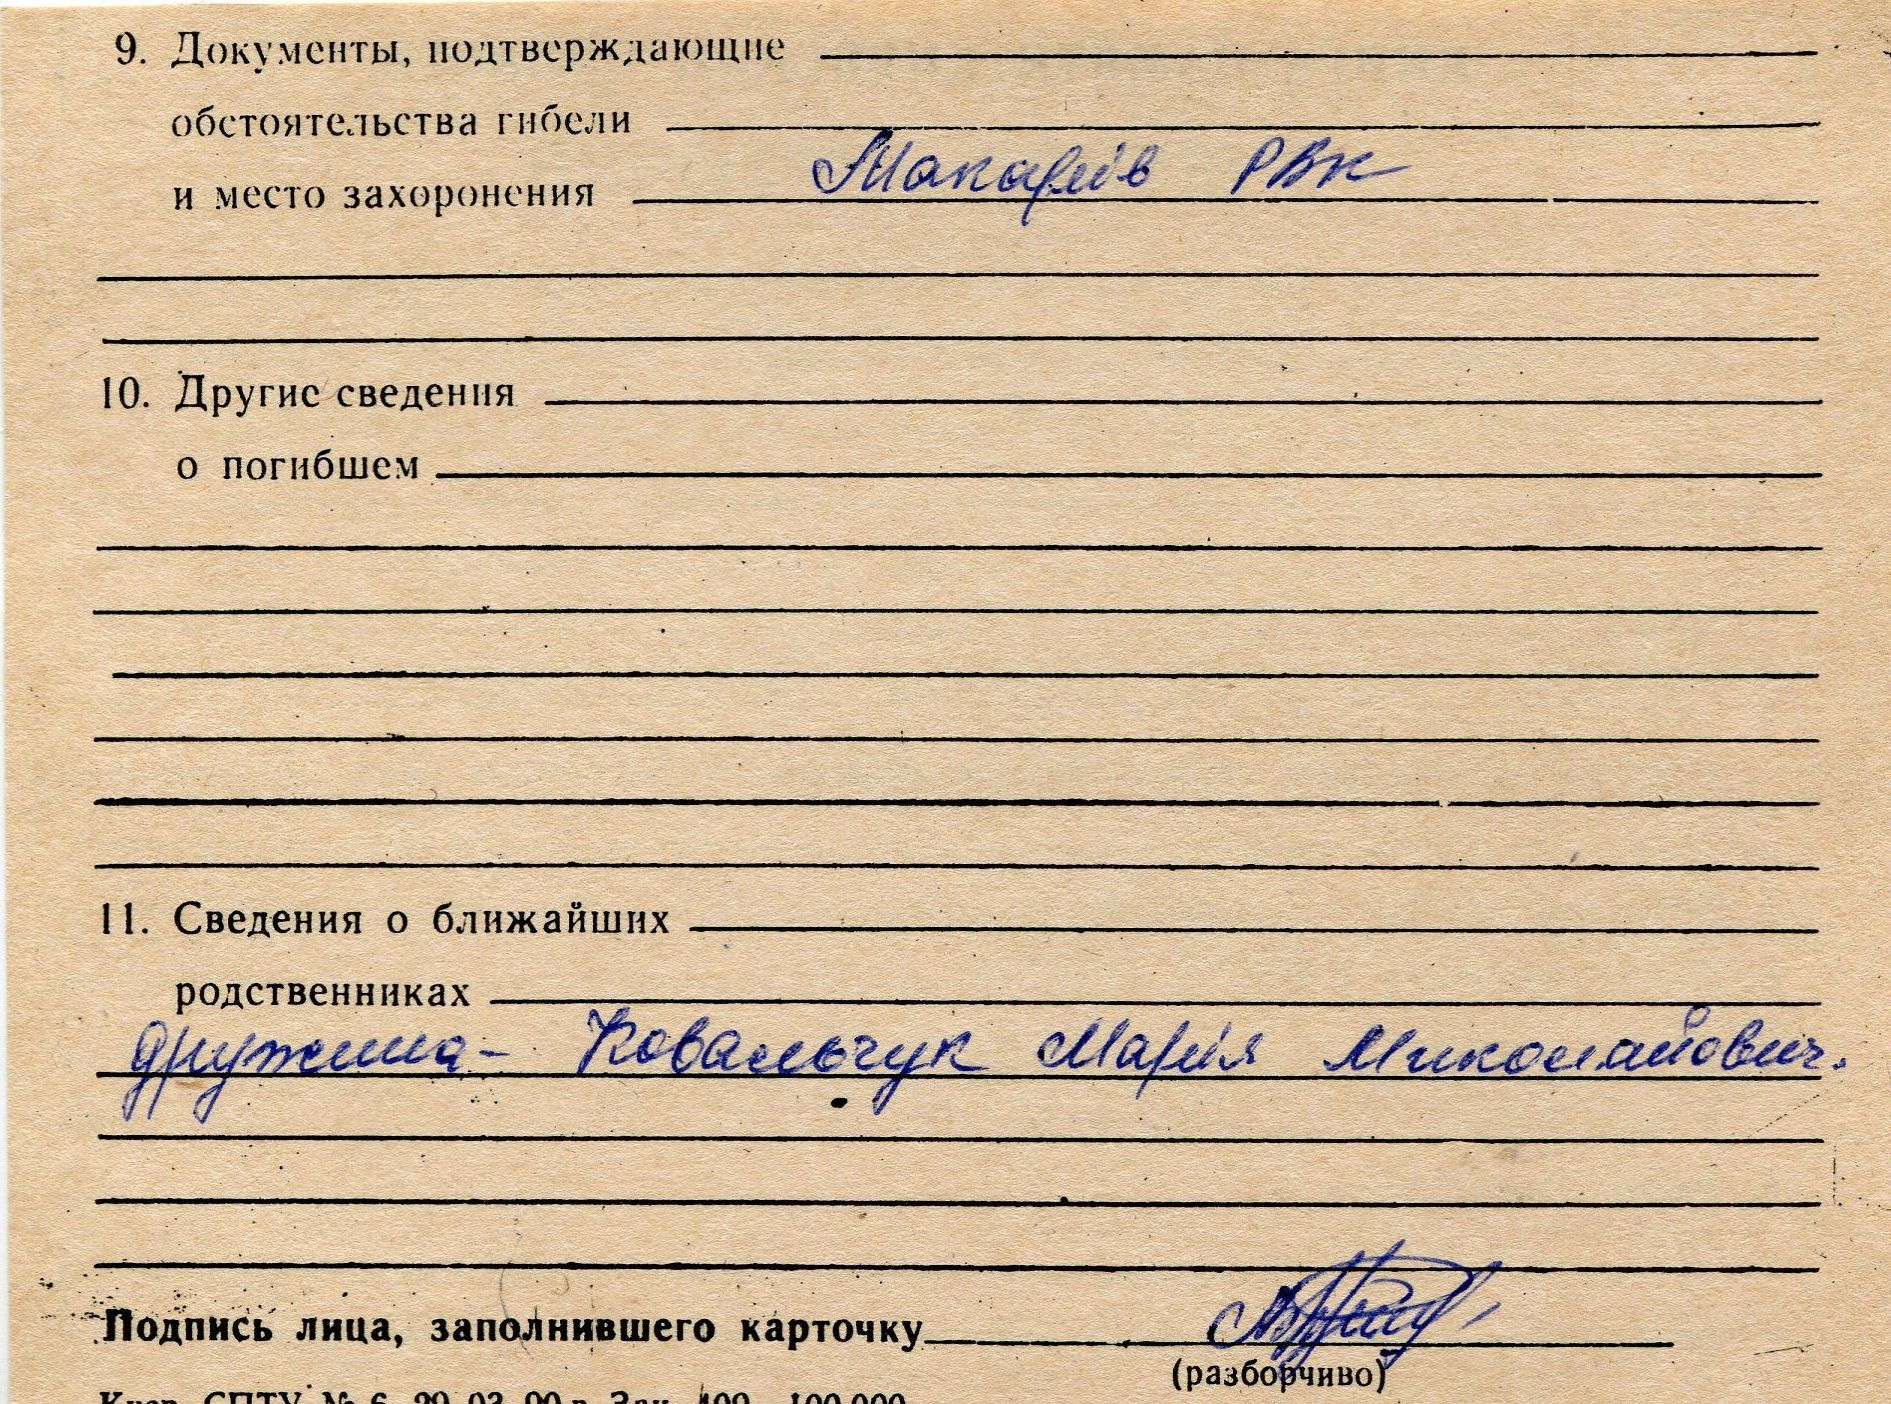 9. Документы, подтверждающие
обстоятельства гибели
и место захоронения Макарів РВК
10. Другие сведения
о погибшем
11. Сведения о ближайших
родственниках
дружина- Ковальчук Марія Миколайович.
Подпись лица, заполнившего карточку
(разборчиво)
СПТУ № 6 29 03 90 г. Зак. 499 100 000